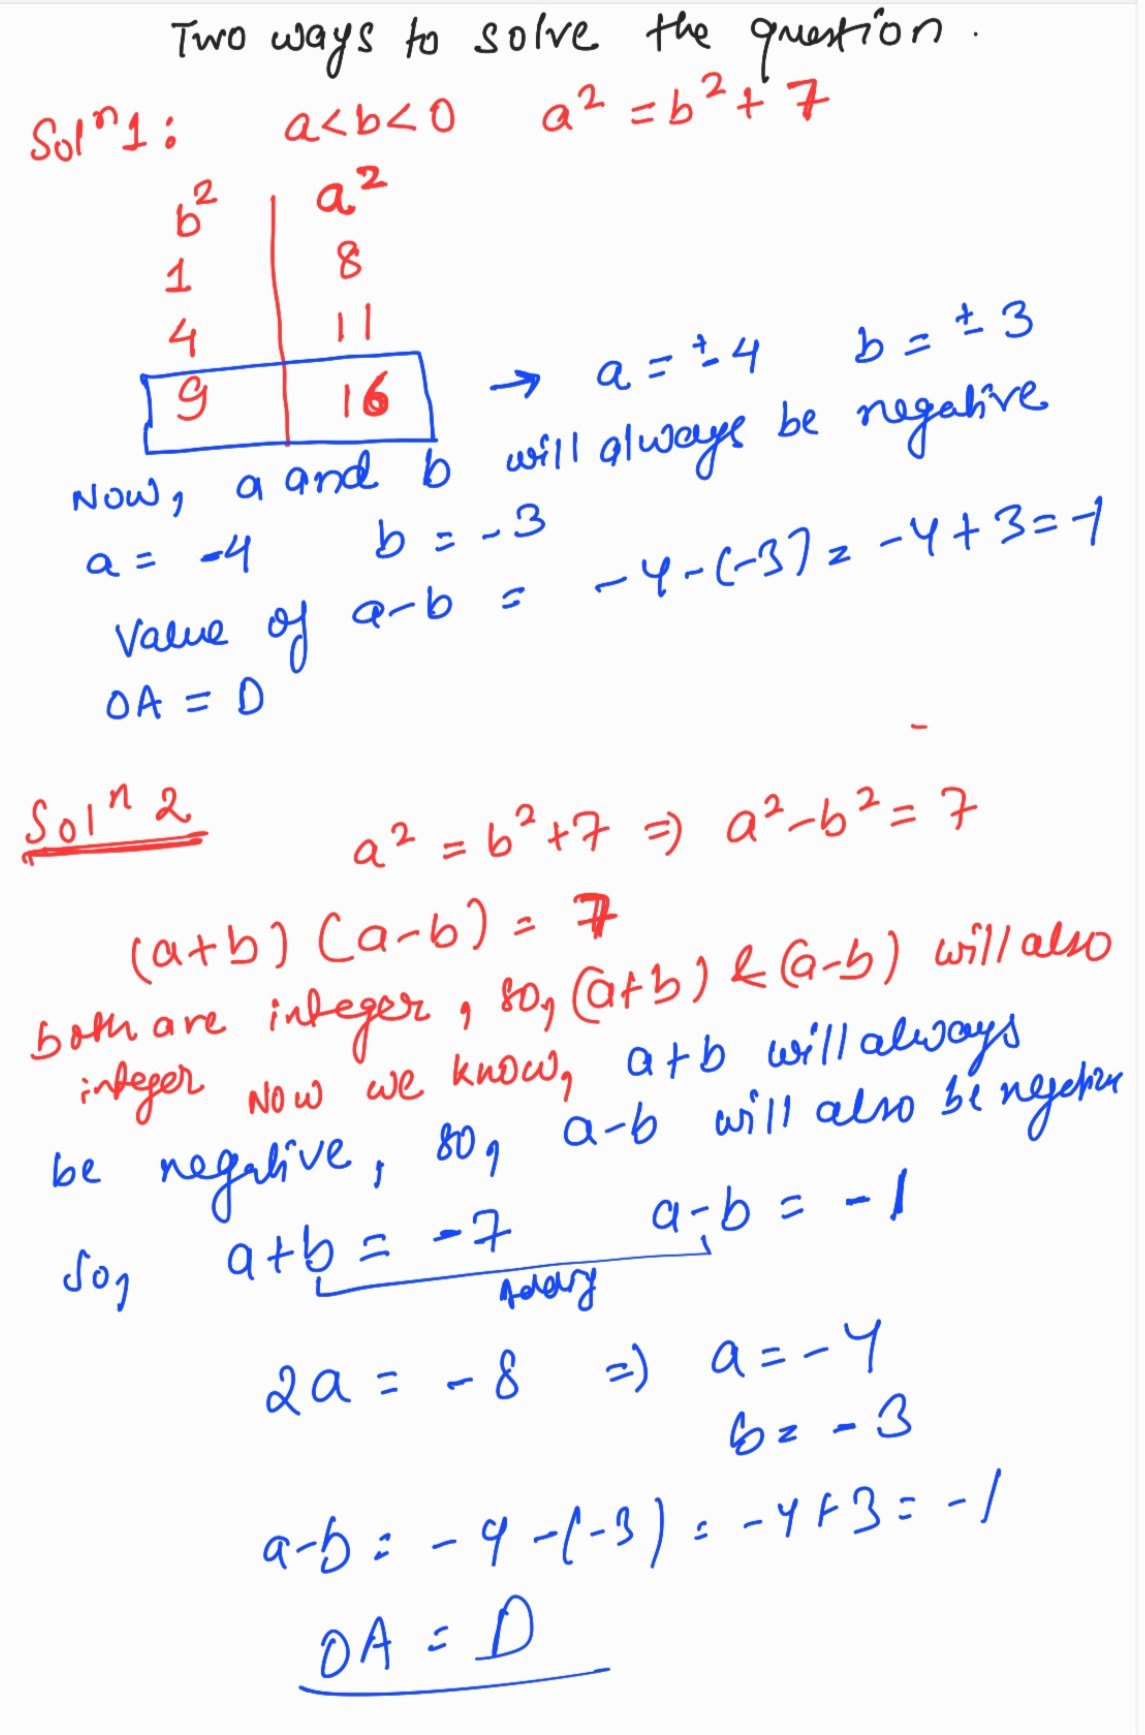 Two ways to solve the question.
Solⁿ1: a<b<0 a² = b² + 7
b² a²
1 8
4 11
9 16 → a = ±4 b = ±3
Now, a and b will always be negative
a = -4 b = -3
Value of a-b = -4-(-3) = -4+3=-1
OA = D
Solⁿ 2
a² = b²+7 ⇒ a²-b² = 7
(a+b) (a-b) = 7
both are integer, so, (a+b) & (a-b) will also
integer Now we know, a+b will always
be negative, so, a-b will also be negative
So, a+b = -7 a-b = -1
Adding
2a = -8 ⇒ a = -4
b = -3
a-b = -4-(-3) = -4+3 = -1
OA = D